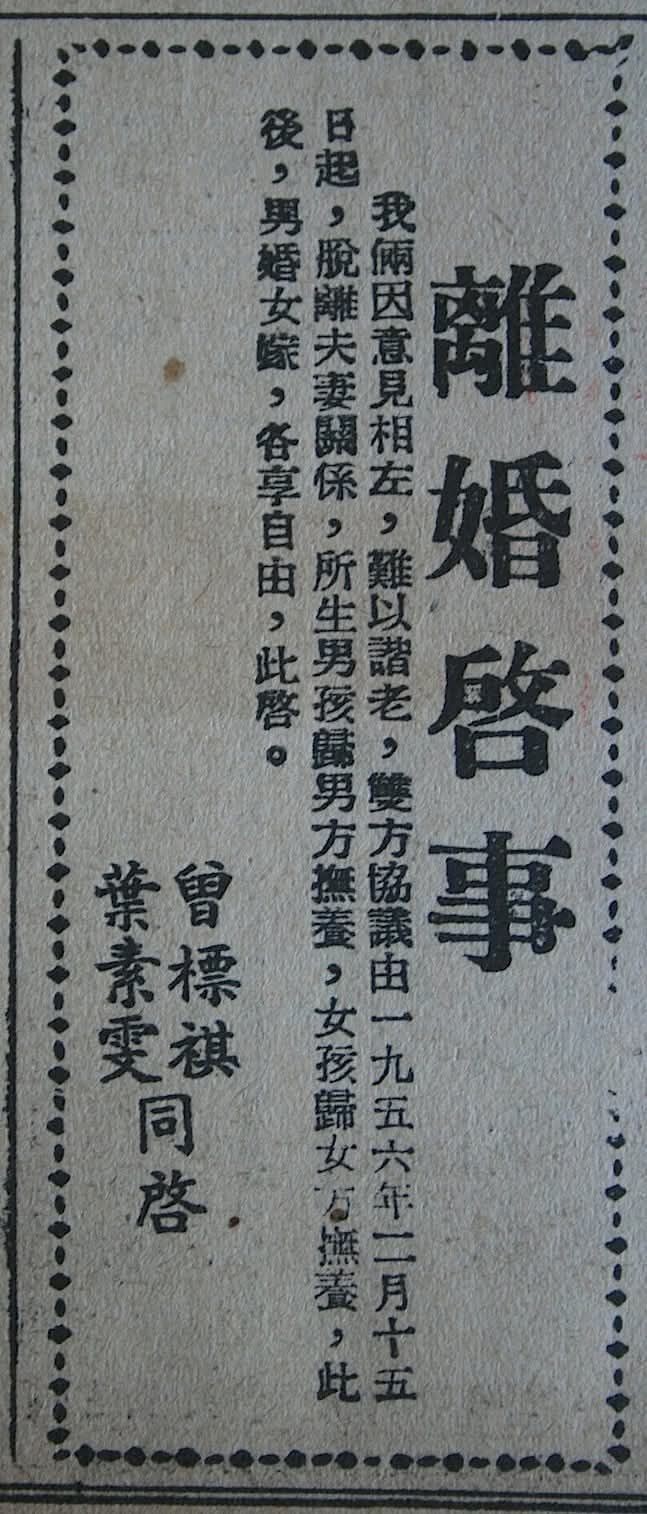 離婚啓事
我倆因意見相左，難以諧老，雙方協議由一九五六年二月十五
日起，脫離夫妻關係，所生男孩歸男方撫養，女孩歸女方撫養，此
後，男婚女嫁，各享自由，此啓。
曾標祺
葉素雯
同啓